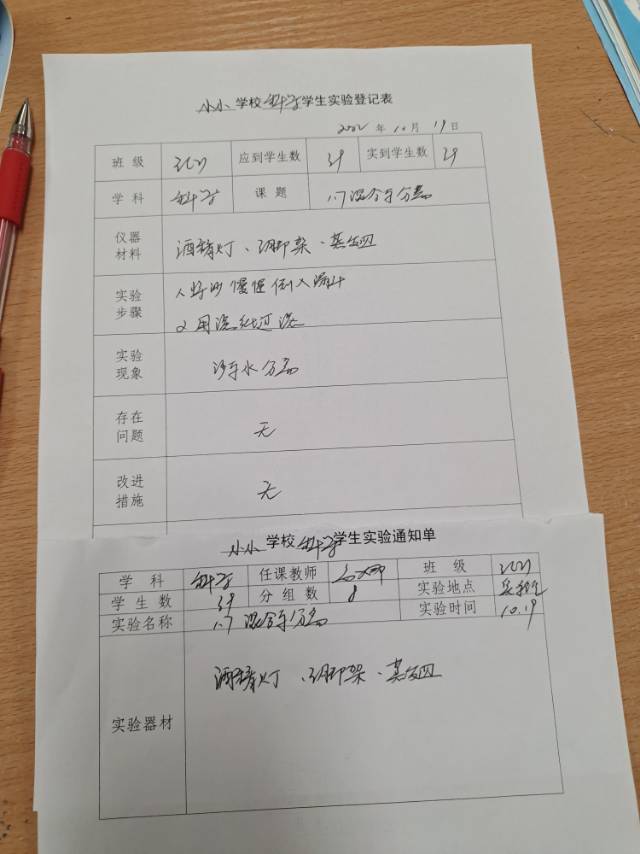 小小 学校 科学 学生实验登记表
2022 年 10 月 19 日
班 级 应到学生数 39 实到学生数 39
学 科 科学 课 题 1.7 混合与分离
仪器材料 酒精灯、三脚架、蒸发皿
实验步骤 1、好沙慢慢倒入漏斗
2 用滤纸过滤
实验现象 沙与水分离
存在问题 无
改进措施 无
小小 学校 科学 学生实验通知单
学 科 科学 任课教师 班 级
学 生 数 39 分 组 数 8 实验地点
实验名称 1.7 混合与分离 实验时间 10.19
实验器材 酒精灯、三脚架、蒸发皿